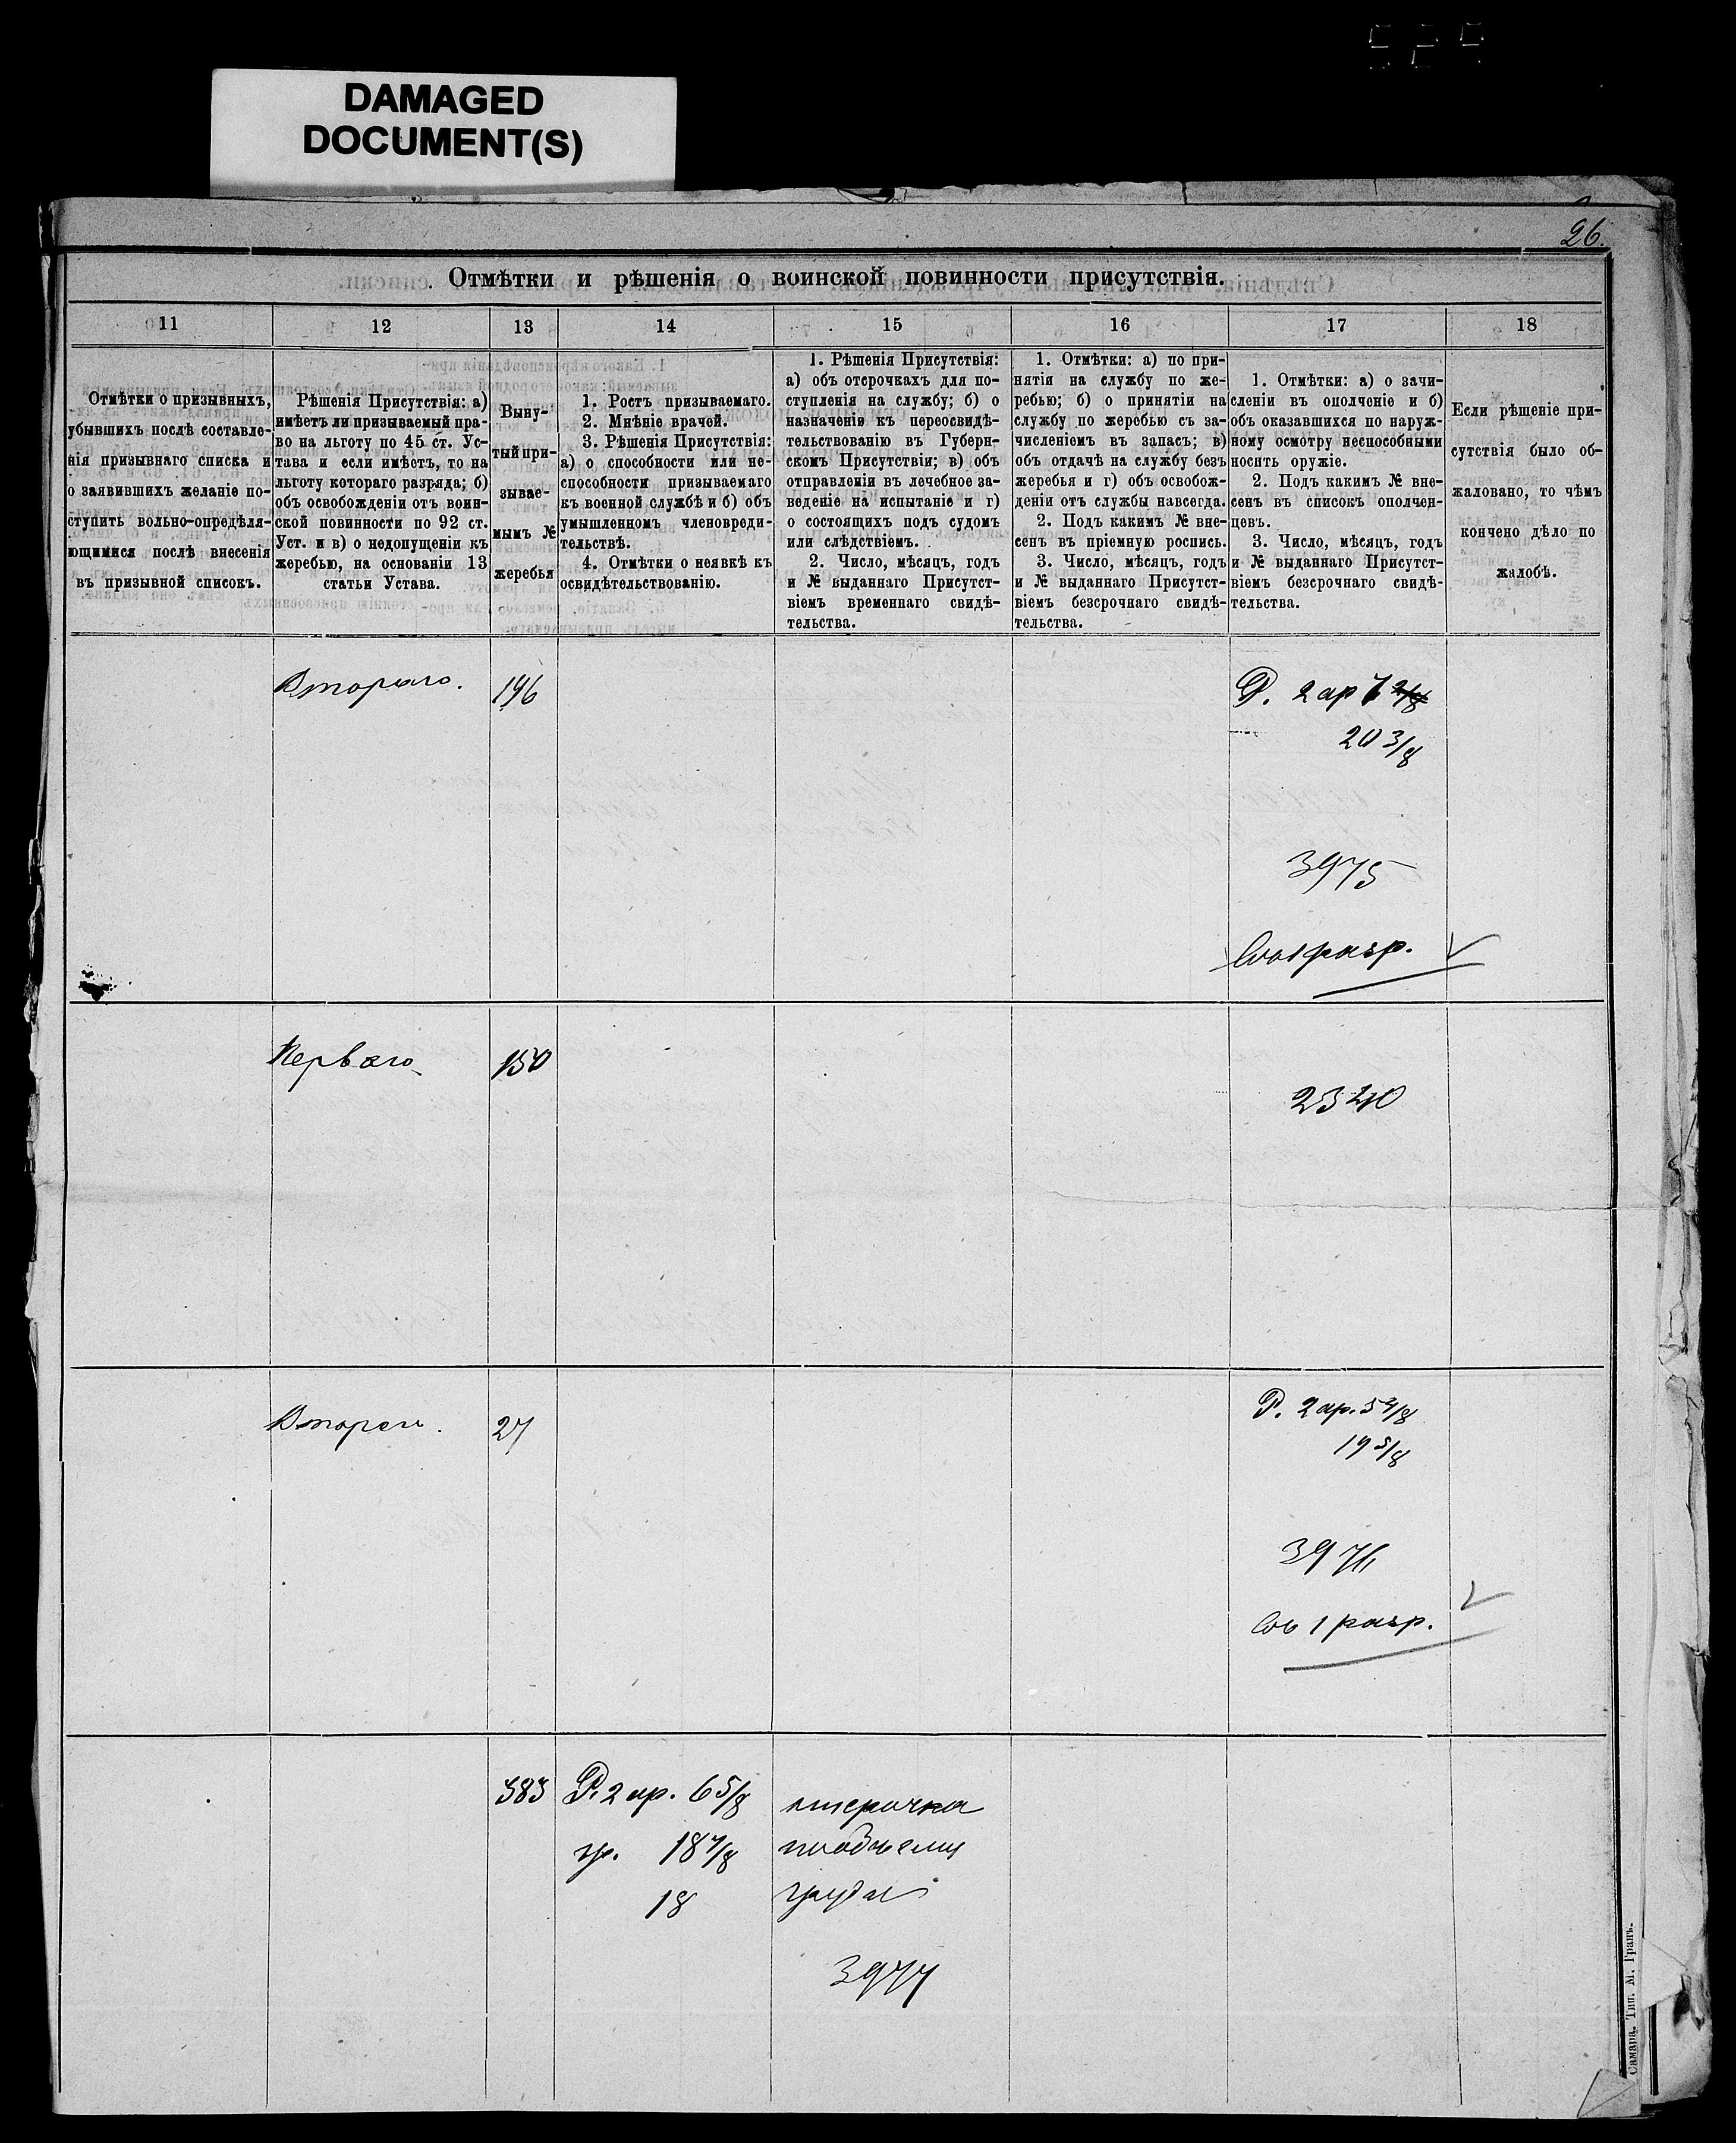 529
DAMAGED
DOCUMENT(S)
26.
Отмѣтки и рѣшенія о воинской повинности присутствія.
11
12
13
14
15
16
17
18
Отмѣтки о призывныхъ,
убывшихъ послѣ составле-
нія призывнаго списка и
о заявившихъ желаніе по-
ступить вольно-опредѣля-
ющимися послѣ внесенія
въ призывной списокъ.
Рѣшенія Присутствія: а)
имѣетъ ли призываемый пра-
во на льготу по 45 ст. Ус-
тава и если имѣетъ, то на
льготу котораго разряда; б)
объ освобожденіи отъ воин-
ской повинности по 92 ст.
Уст. и в) о недопущеніи къ
жеребью, на основаніи 13
статьи Устава.
Выну-
тый при-
зывае-
мымъ №
жеребья
1. Ростъ призываемаго.
2. Мнѣніе врачей.
3. Рѣшенія Присутствія:
а) о способности или не-
способности призываемаго
къ военной службѣ и б) объ
умышленномъ членовреди-
тельствѣ.
4. Отмѣтки о неявкѣ къ
освидѣтельствованію.
1. Рѣшенія Присутствія:
а) объ отсрочкахъ для по-
ступленія на службу; б) о
назначеніи къ переосвидѣ-
тельствованію въ Губерн-
скомъ Присутствіи; в) объ
отправленіи въ лечебное за-
веденіе на испытаніе и г)
о состоящихъ подъ судомъ
или слѣдствіемъ.
2. Число, мѣсяцъ, годъ
и № выданнаго Присутст-
віемъ временнаго свидѣ-
тельства.
1. Отмѣтки: а) по при-
нятія на службу по же-
ребью; б) о принятіи на
службу по жеребью съ за-
численіемъ въ запасъ; в)
объ отдачѣ на службу безъ
жеребья и г) объ освобож-
деніи отъ службы навсегда.
2. Подъ какимъ № вне-
сенъ въ пріемную роспись.
3. Число, мѣсяцъ, годъ
и № выданнаго Присутст-
віемъ безсрочнаго свидѣ-
тельства.
1. Отмѣтки: а) о зачи-
сленіи въ ополченіе и б)
объ оказавшихся по наруж-
ному осмотру неспособными
носить оружіе.
2. Подъ какимъ № вне-
сенъ въ списокъ ополчен-
цевъ.
3. Число, мѣсяцъ, годъ
и № выданнаго Присутст-
віемъ безсрочнаго свидѣ-
тельства.
Если рѣшеніе при-
сутствія было об-
жаловано, то чѣмъ
кончено дѣло по
жалобѣ.
Втораго.
196
Р. 2 ар 7
20 3/8
3975
1 разр.
Перваго
150
2340
Втораго.
27
Р. 2 ар. 5 2/8
19 5/8
3976
1 разр.
383
Р. 2 ар. 6 5/8
гр. 18 7/8
18
отсрочка
груди
3977
Самара. Тип. М. Гранъ.